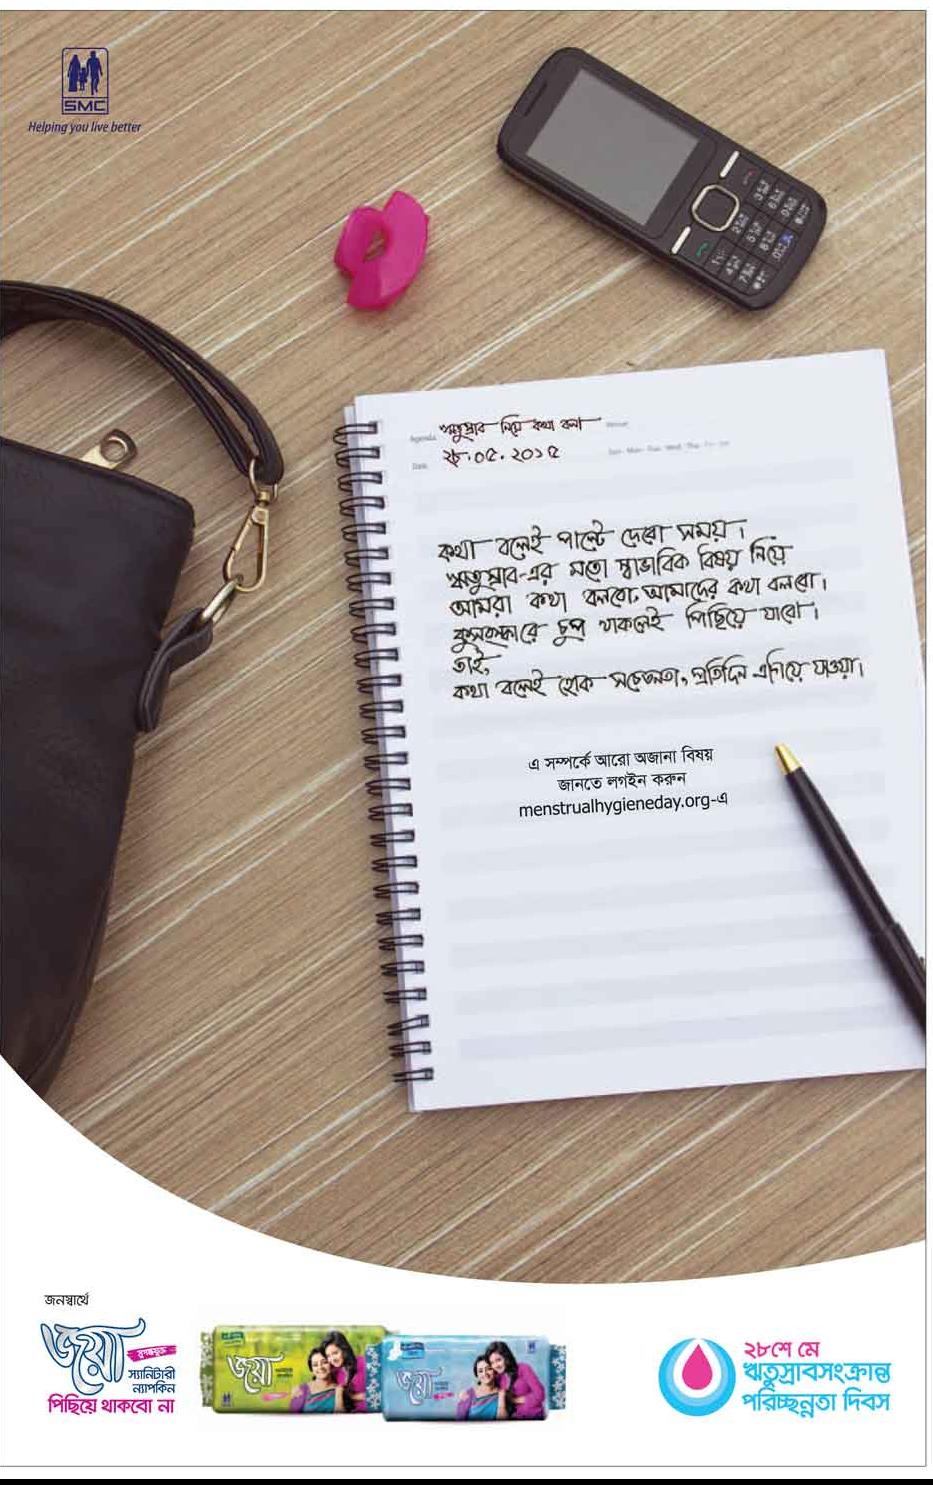 SMC
Helping you live better
Agenda ঋতুস্রাব নিয়ে কথা বলা Venue
Date ২৮.০৫.২০১৫ Sun Mon Tue Wed Thu Fri Sat
কথা বলেই পাল্টে দেবো সময়।
ঋতুস্রাব-এর মতো স্বাভাবিক বিষয় নিয়ে
আমরা কথা বলবো, আমাদের কথা বলবো।
কুসংস্কারে চুপ থাকলেই পিছিয়ে যাবো।
তাই,
কথা বলেই হোক সচেতনতা, প্রতিদিন এগিয়ে যাওয়া।
এ সম্পর্কে আরো অজানা বিষয়
জানতে লগইন করুন
menstrualhygieneday.org-এ
জনস্বার্থে
জয়া
সুগন্ধযুক্ত
স্যানিটারী
ন্যাপকিন
পিছিয়ে থাকবো না
জয়া
জয়া
২৮শে মে
ঋতুস্রাবসংক্রান্ত
পরিচ্ছন্নতা দিবস